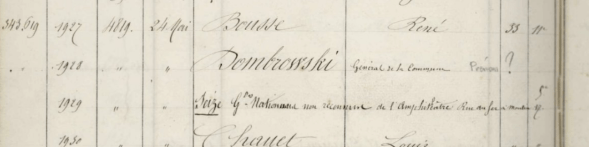 343.619 1927 4819. 24 Mai Bousse René 33 11
" 1928 " " Dombrowski Général de la Commune ?
1929 " " Seize Gdes Nationaux non reconnus de l'Amphithéâtre Rue du
1930 Chauet Louis